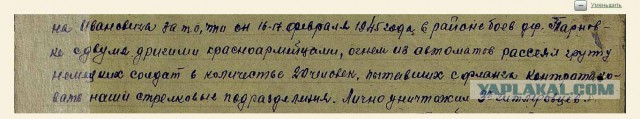 Уменьшить
на Ивановича за то, что он 16-17 февраля 1945 года, в районе боев дер. Тарнов-
ке с двумя другими красноармейцами, огнем из автоматов рассеял группу
немецких солдат в количестве 20 человек, пытавших с фланга контратако-
вать наши стрелковые подразделения. Лично уничтожил гитлеровцев.
YAPLAKAL.COM